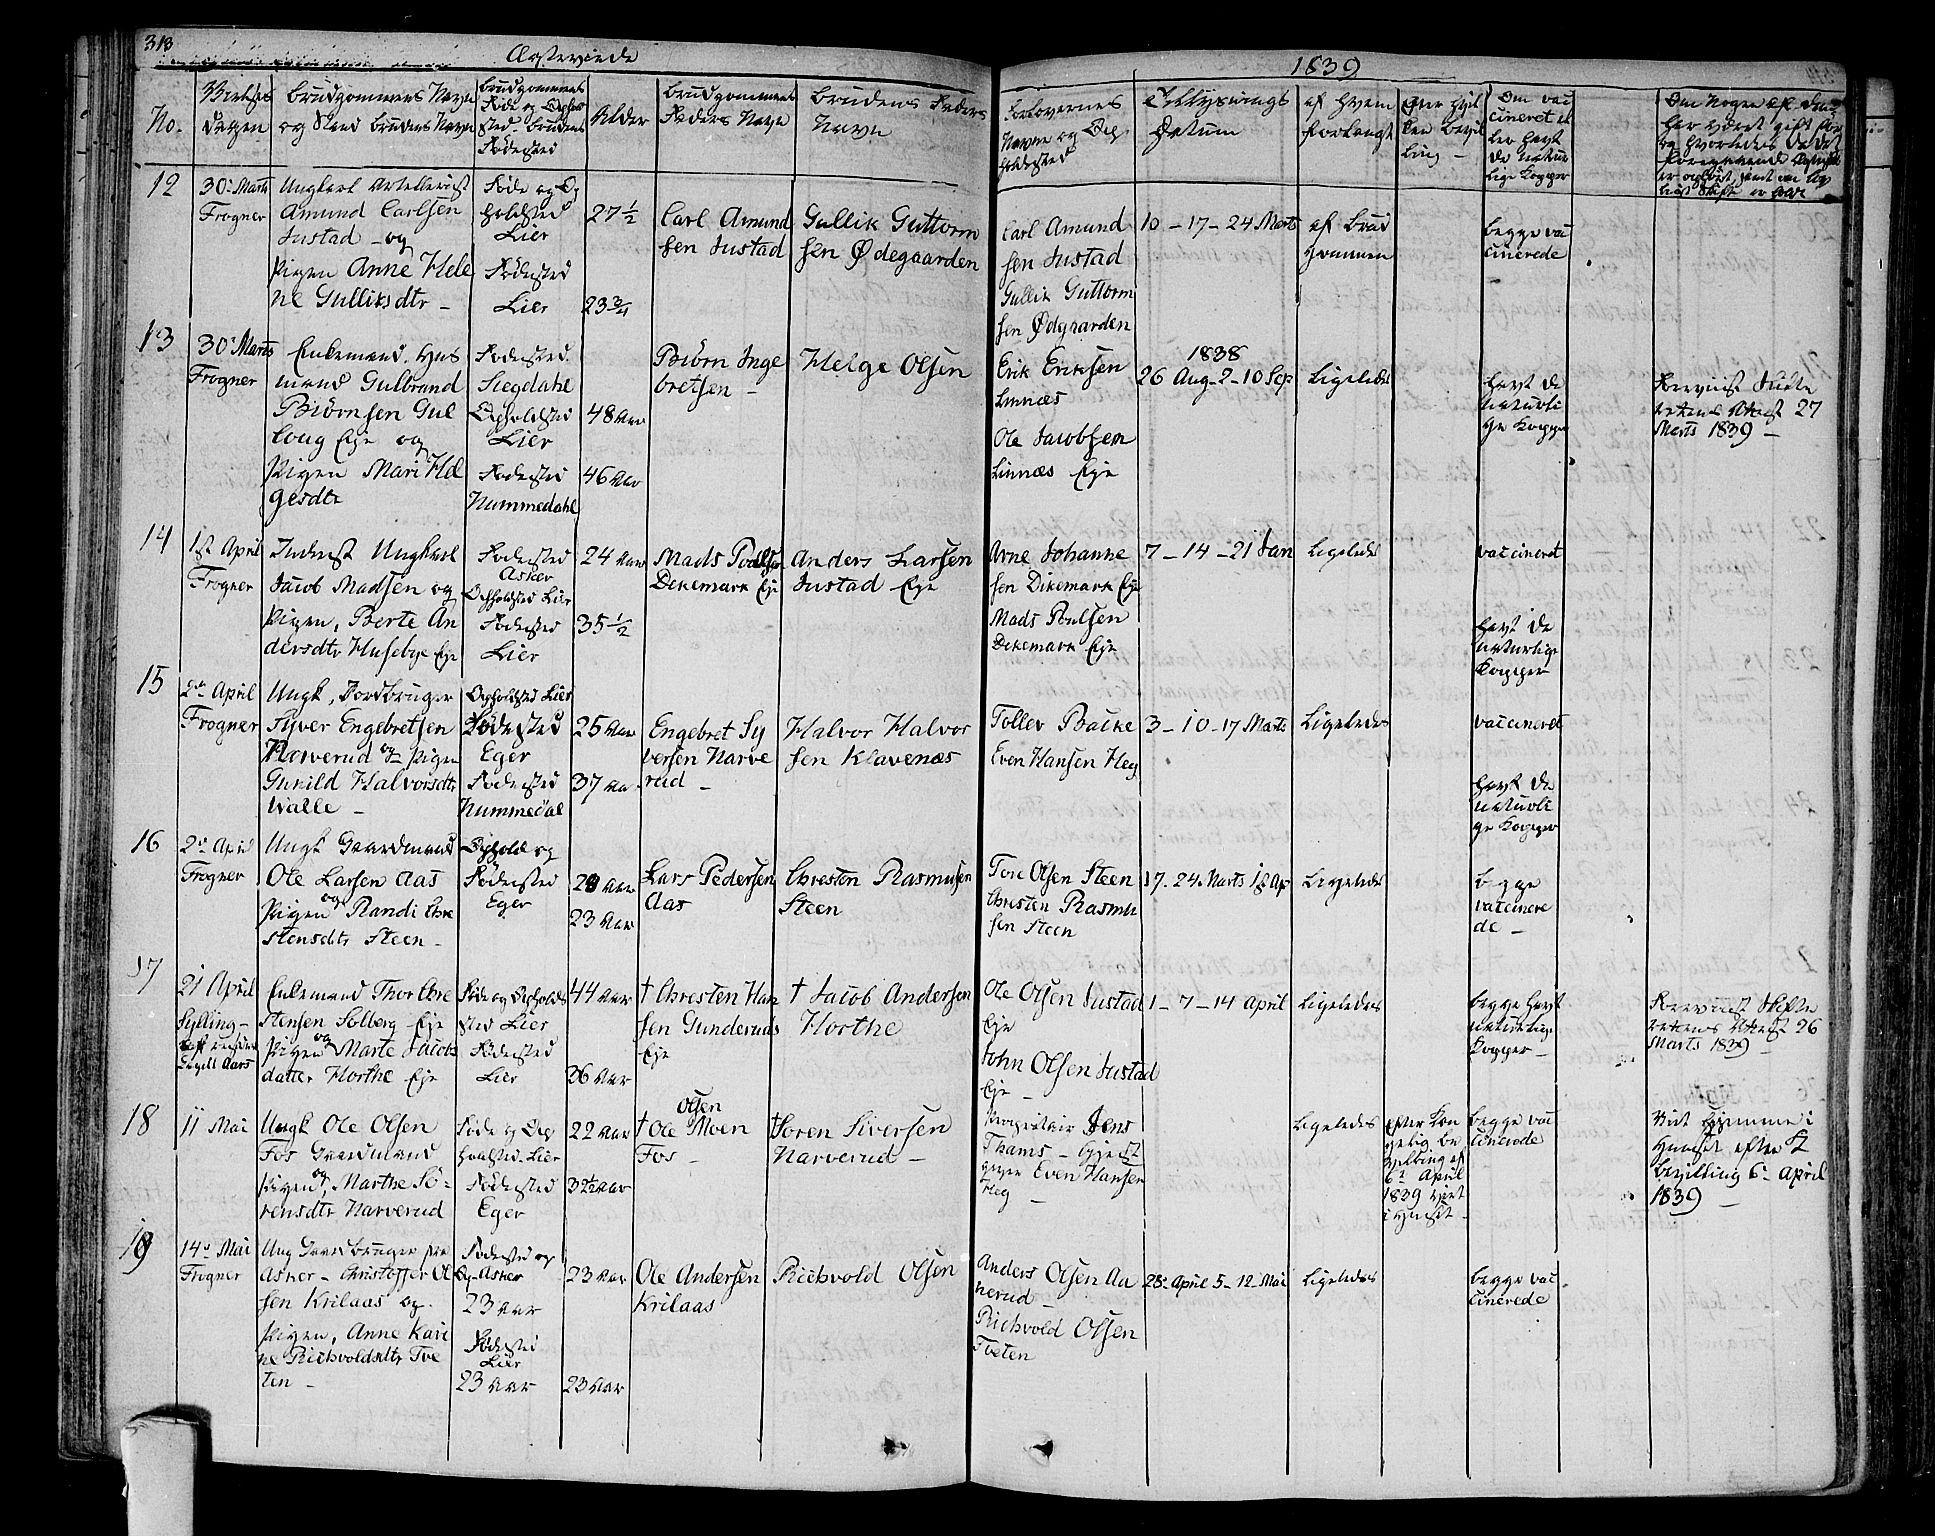 313
Ægteviede
1839
No.
Vielses
Dagen
Brudgommens Navn
og Stand Brudens Navn
Brudgommens
Føde og Ophold
sted. Brudens
Fødested
Alder
Brudgommens
Faders Navn
Brudens Faders
Navn
Forlovernes
Navne og Op
holdsted
Tillysnings
Datum
af hvem
forlangt
Efter hvil
ken bevil
ling
Om vac
cineret el
ler havt
de natur
lige Kopper
12
30. Marts
Frogner
Ungkarl Artellerist
Amund Carlsen
Justad - og
Pigen Anne Hele
ne Gulliksdtr -
Føde og Op
holdsted
Lier
Fødested
Lier
27 1/2
23 3/4
Carl Amund
sen Justad
Gullik Guttorm
sen Ødegaarden
Carl Amund
sen Justad
Gullik Guttorm
sen Ødgaarden
10 - 17 - 24 Marts
af Brud
gommen
begge vac
cinerede
13
30. Marts
Frogner
Enkemand. Hus
mand Gulbrand
Biørnsen Gul
loug Eje og
Pigen Mari Hel
gesdtr
Fødested.
Siegdahl
Opholdsted
Lier
Fødested
Nummedahl
48 Aar
46 Aar
Biørn Inge
bretsen -
Helge Olsen
Erik Eriksen
Linnæs
Ole Jacobsen
Linnæs Eje
1838
26 Aug - 2 - 10 Sep
Ligeledes
havt de
naturli
ge Kopper
Marts 1839 -
14
1st April
Frogner
Inderst Ungkarl
Jacob Madsen og
Pigen, Berte An
dersdtr Husebye Eje
Fødested
Asker
Opholdsted Lier
Fødested
Lier
24 Aar
35 1/2
Mads Poulsen
Dekemark Eje
Anders Larsen
Justad Eje
Arne Johanne
sen Dikemark Eje
Mads Poulsen
Dekemark Eje
7 - 14 - 21 Jan
Ligeledes
vaccineret
havt de
naturlige
Kopper
15
2. April
Frogner
Ungk. Jordbruger
Syver Engebretsen
Narverud og Pigen
Gunild Halvorsdtr
Walle -
Opholdsted Lier
Fødested
Eger
Fødested
Nummedal
25 Aar
37 Aar
Engebret Sy
versen Narve
rud -
Halvor Halvor
sen Klavenæs
Tollev Backe
Even Hansen Heg
3 - 10 - 17 Marts
Ligeledes
vaccineret
havt de
naturli
ge Kopper
16
2. April
Frogner
Ungk Gaardmand
Ole Larsen Aas
og
Pigen Randi Chre
stensdtr Steen -
Ophold og
Fødested
Eger
Aar
23 Aar
Lars Pedersen
Aas
Chresten Rasmusen
Steen
Tore Olsen Steen
Chresten Rasmu
sen Steen
17. 24. Marts 1st Ap
Ligeledes
begge
vaccinere
de -
17
21 April
Sylling -
Enkemand Thor Chre
stensen Solberg - Eje
og
Pigen Marte Jacobs
datter Horthe Eje
Føde og Ophold
sted Lier
Fødested
Lier
44 Aar
36 Aar
† Chresten Han
sen Gunderuds
Eje
† Jacob Andersen
Horthe
Ole Olsen Justad
Eje
John Olsen Justad
Eje -
1 - 7 - 14 April
Ligeledes
begge havt
naturlige
Kopper -
Marts 1839 -
18
11 Mai
Ungk Ole Olsen
Fos Gaardmand
og
Pigen, Marthe Sø-
rensdtr Narverud
Føde og Op
holdsted - Lier
Fødested
Eger
22 Aar
Aar
Olsen
† Ole Moen
Fos -
† Søren Siversen
Narverud -
Proprietair Jens
Thams -
Even Hansen
Heg -
Ligeledes
efter Kon
gelig be
villing af
6te April
1839 viet
i Huset -
begge vac
cinerede
Viet Hjemme i
Huuset efter K
bevilling 6. April
1839 -
19
14. Mai
Frogner
Ung Gaardbruger fra
Asker - Christoffer Ol
sen Krilaas og.
Pigen, Anne Kari
ne Richvoldsdtr Tve
ten -
Fødested og
Op - Asker
23 Aar
Fødested
Lier
23 Aar
23 Aar
23 Aar
Ole Andersen
Krilaas
Richvold Olsen
Anders Olsen Aa
nerud -
Richvold Olsen
Tveten
28. April 5 - 12 - Mai
Ligeledes
begge vac
cinerede